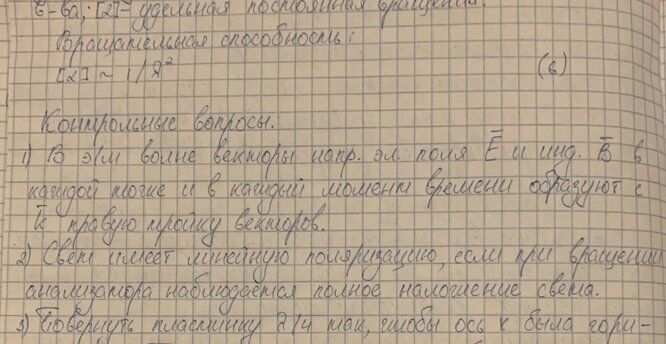 б-ва; [α]- удельная постоянная вращения.
Вращательная способность:
[α] ~ 1/λ² (6)
Контрольные вопросы.
1) В э/м волне векторы напр. эл. поля E̅ и инд. B̅ в
каждой точке и в каждый момент времени образуют с
k̅ правую тройку векторов.
2) Свет имеет линейную поляризацию, если при вращении
анализатора наблюдается полное
света.
3) Повернуть пластинку λ/4 так, чтобы ось x была гори-